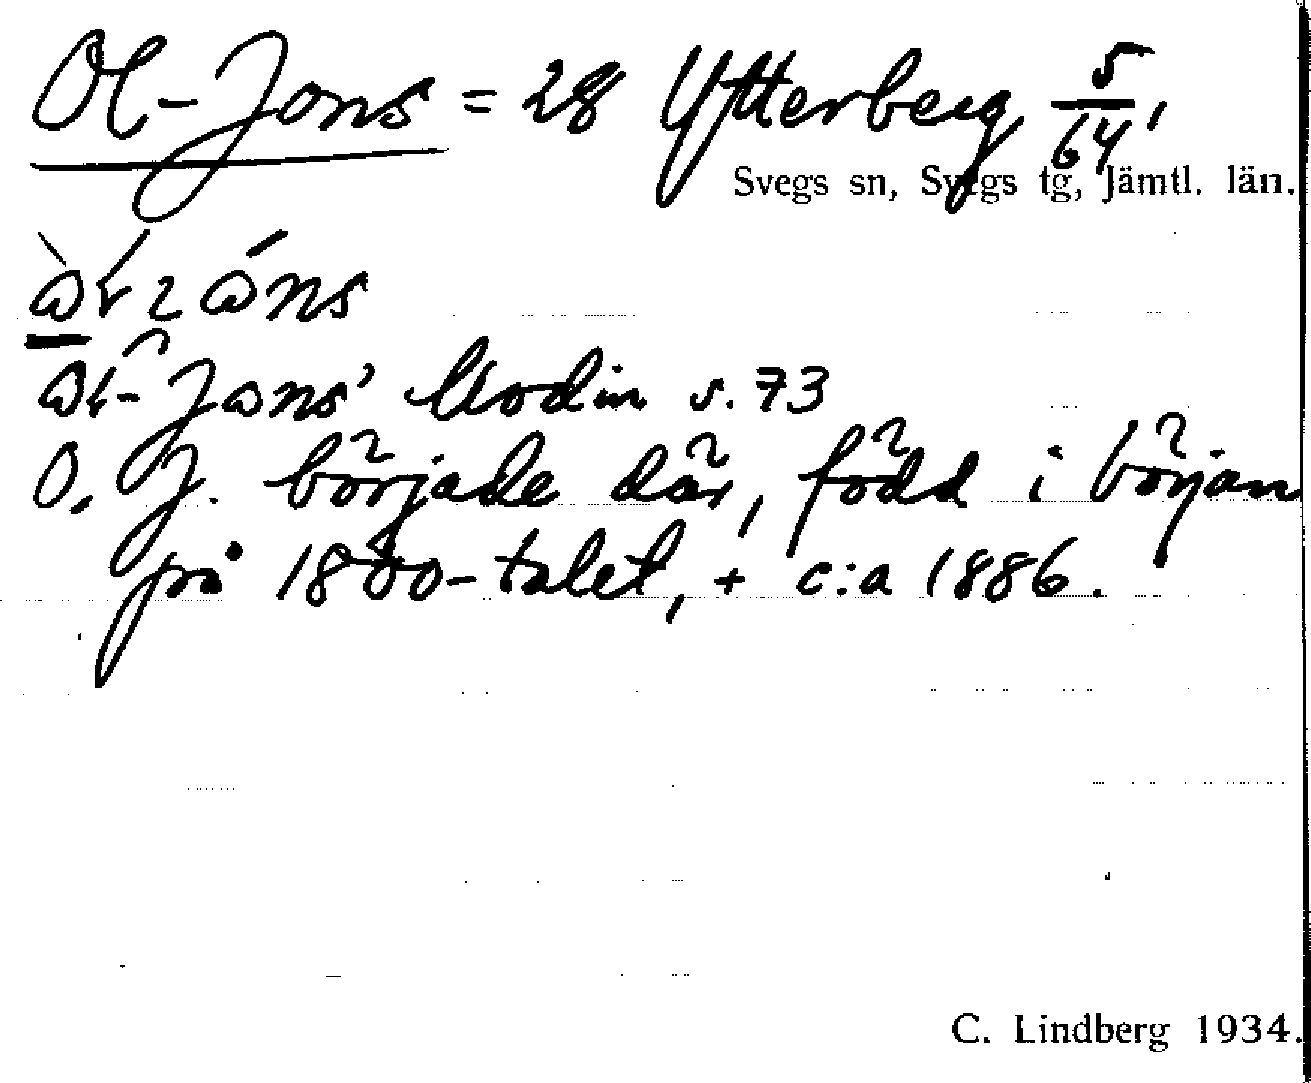 Ol-Jons = 28 Ytterberg 5/64,
Svegs sn, Svegs tg, Jämtl. län.
Jons' Modin s. 73
O. J. började där, född i början
på 1800-talet, + c:a 1886.
C. Lindberg 1934.